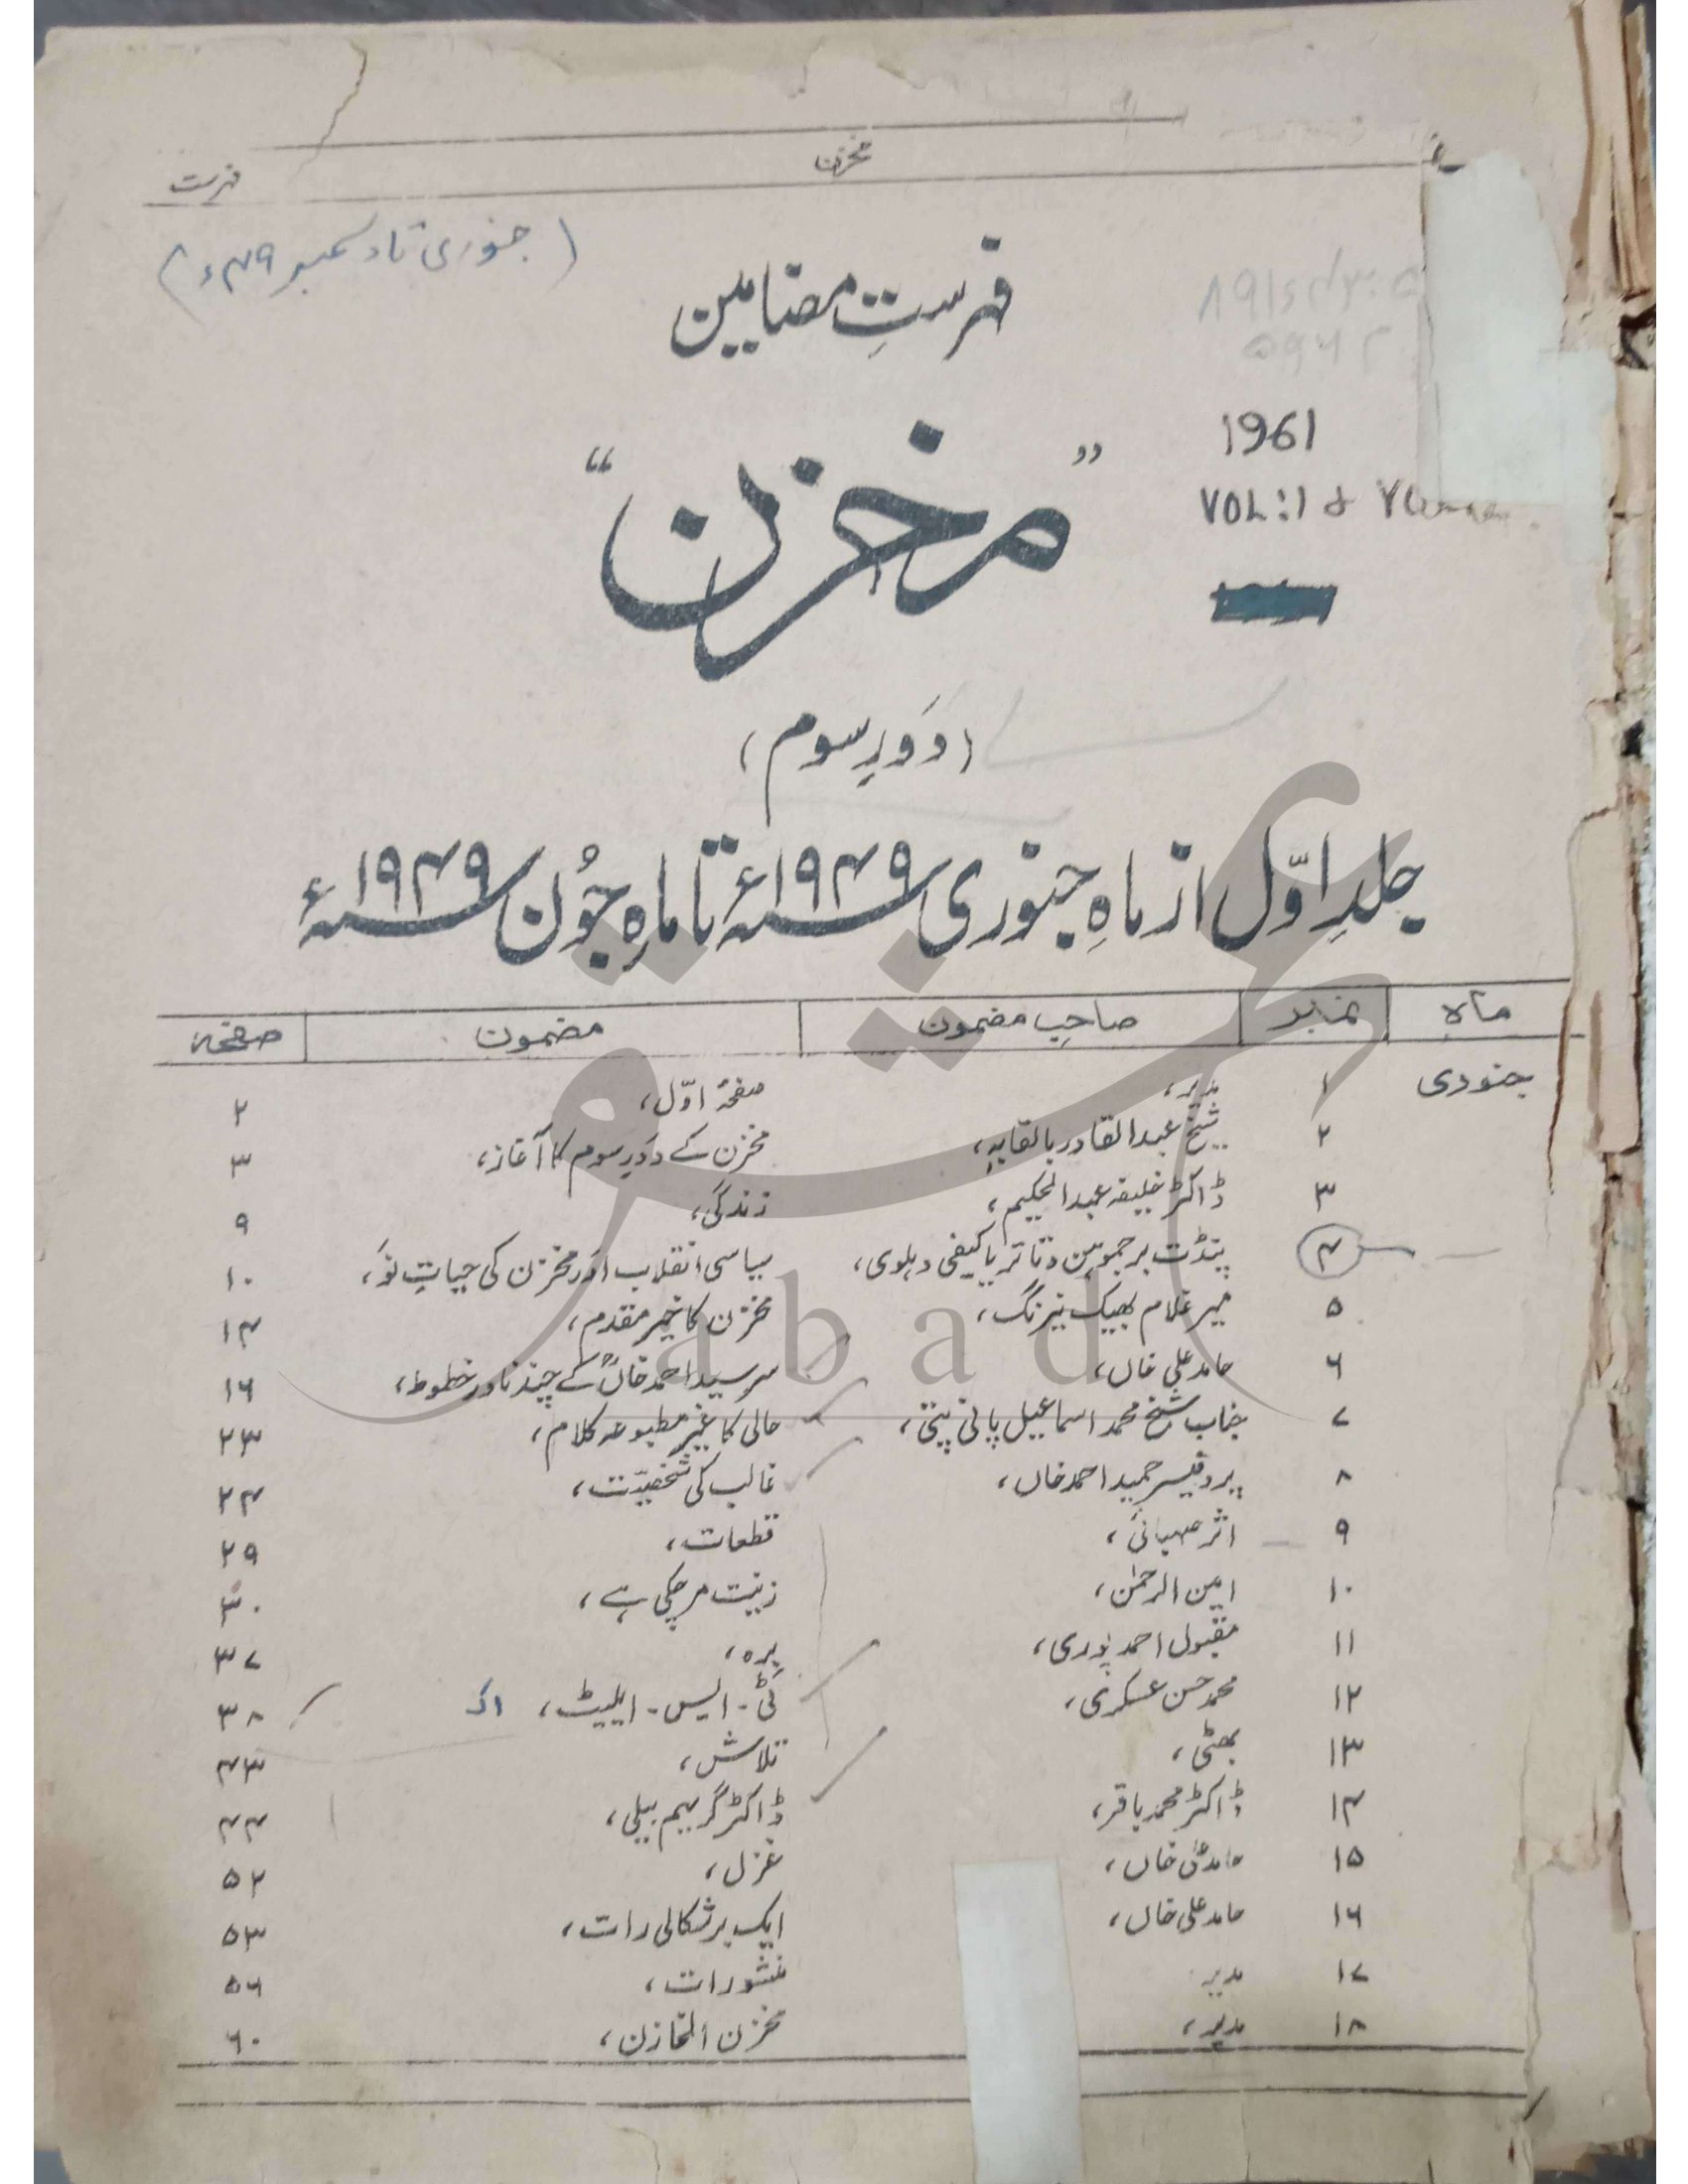 مخزن
فہرست
(جنوری تا دسمبر ۴۹ء)
فہرستِ مضامین
1961
VOL:1 &
"مخزن"
(دَورِ سوم)
جلدِ اوّل از ماہِ جنوری ۱۹۴۹ء تا ماہِ جُون ۱۹۴۹ء
ماہ نمبر صاحبِ مضمون مضمون صفحہ
جنوری ۱ مدیر، صفحۂ اوّل، ۲
۲ شیخ عبدالقادر بالقابہٖ، مخزن کے دَورِ سوم کا آغاز، ۳
۳ ڈاکٹر خلیفہ عبدالحکیم، زندگی، ۹
۴ پنڈت برجموہن دتاتریا کیفی دہلوی، سیاسی انقلاب اور مخزن کی حیاتِ نَو، ۱۰
۵ میر غلام بھیک نیرنگ، مخزن کا خیر مقدم، ۱۴
۶ حامد علی خاں، سرسید احمد خاںؒ کے چند نادر خطوط، ۱۶
۷ جناب شیخ محمد اسماعیل پانی پتی، حالی کا غیر مطبوعہ کلام، ۲۳
۸ پروفیسر حمید احمد خاں، غالب کی شخصیّت، ۲۴
۹ اثر صہبائی، قطعات، ۲۹
۱۰ امین الرحمٰن، زینت مر چکی ہے، ۳۰
۱۱ مقبول احمد پوری، برہ، ۳۷
۱۲ محمد حسن عسکری، ٹی۔ ایس۔ ایلیٹ، ۳۸
۱۳ بھٹی، تلاش، ۴۳
۱۴ ڈاکٹر محمد باقر، ڈاکٹر گریہم بیلی، ۴۴
۱۵ حامد علی خاں، غزل، ۵۲
۱۶ حامد علی خاں، ایک برشکالی رات، ۵۳
۱۷ مدیر منشورات، ۵۶
۱۸ مدیر، مخزن المخازن، ۶۰
abad